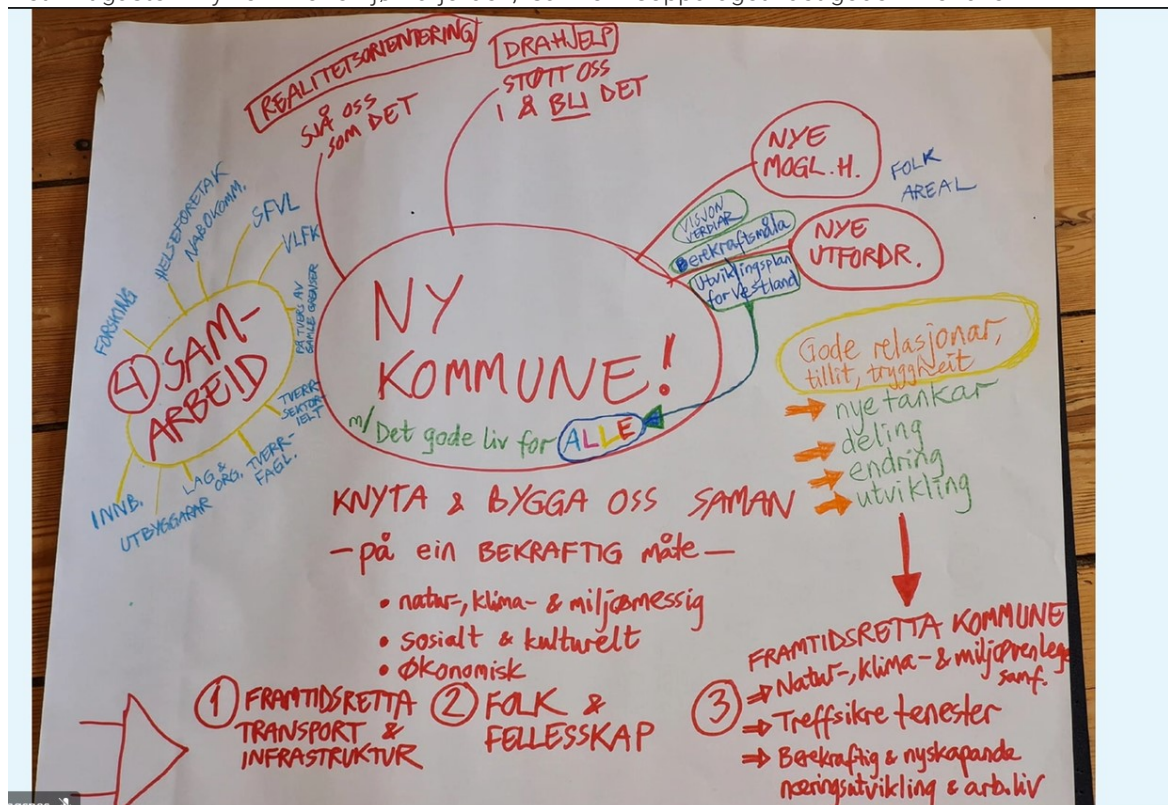 REALITETSORIENTERING
SJÅ OSS
SOM DET
DRAHJELP
STØTT OSS
I Å BLI DET
NYE
MOGL.H.
FOLK
AREAL
NYE
UTFORDR.
VISJON
VERDIAR
Berekraftsmåla
Utviklingsplan
for Vestland
NY
KOMMUNE!
m/Det gode liv for ALLE
4 SAM-
ARBEID
FORSKING
HELSEFORETAK
NABOKOMM.
SFVL
VLFK
PÅ TVERS AV
GAMLE GRENSER
TVERR-
SEKTOR
IELT
TVERR-
FAGL.
LAG &
ORG.
UTBYGGARAR
INNB.
Gode relasjonar,
tillit, tryggheit
nye tankar
deling
endring
utvikling
KNYTA & BYGGA OSS SAMAN
- på ein BEKRAFTIG måte -
• natur-, klima- & miljømessig
• sosialt & kulturelt
• økonomisk
1 FRAMTIDSRETTA
TRANSPORT &
INFRASTRUKTUR
2 FOLK &
FELLESSKAP
FRAMTIDSRETTA KOMMUNE
3
⇒ Natur-, klima- & miljøvenlege
samf.
⇒ Treffsikre tenester
⇒ Berekraftig & nyskapande
næringsutvikling & arb.liv